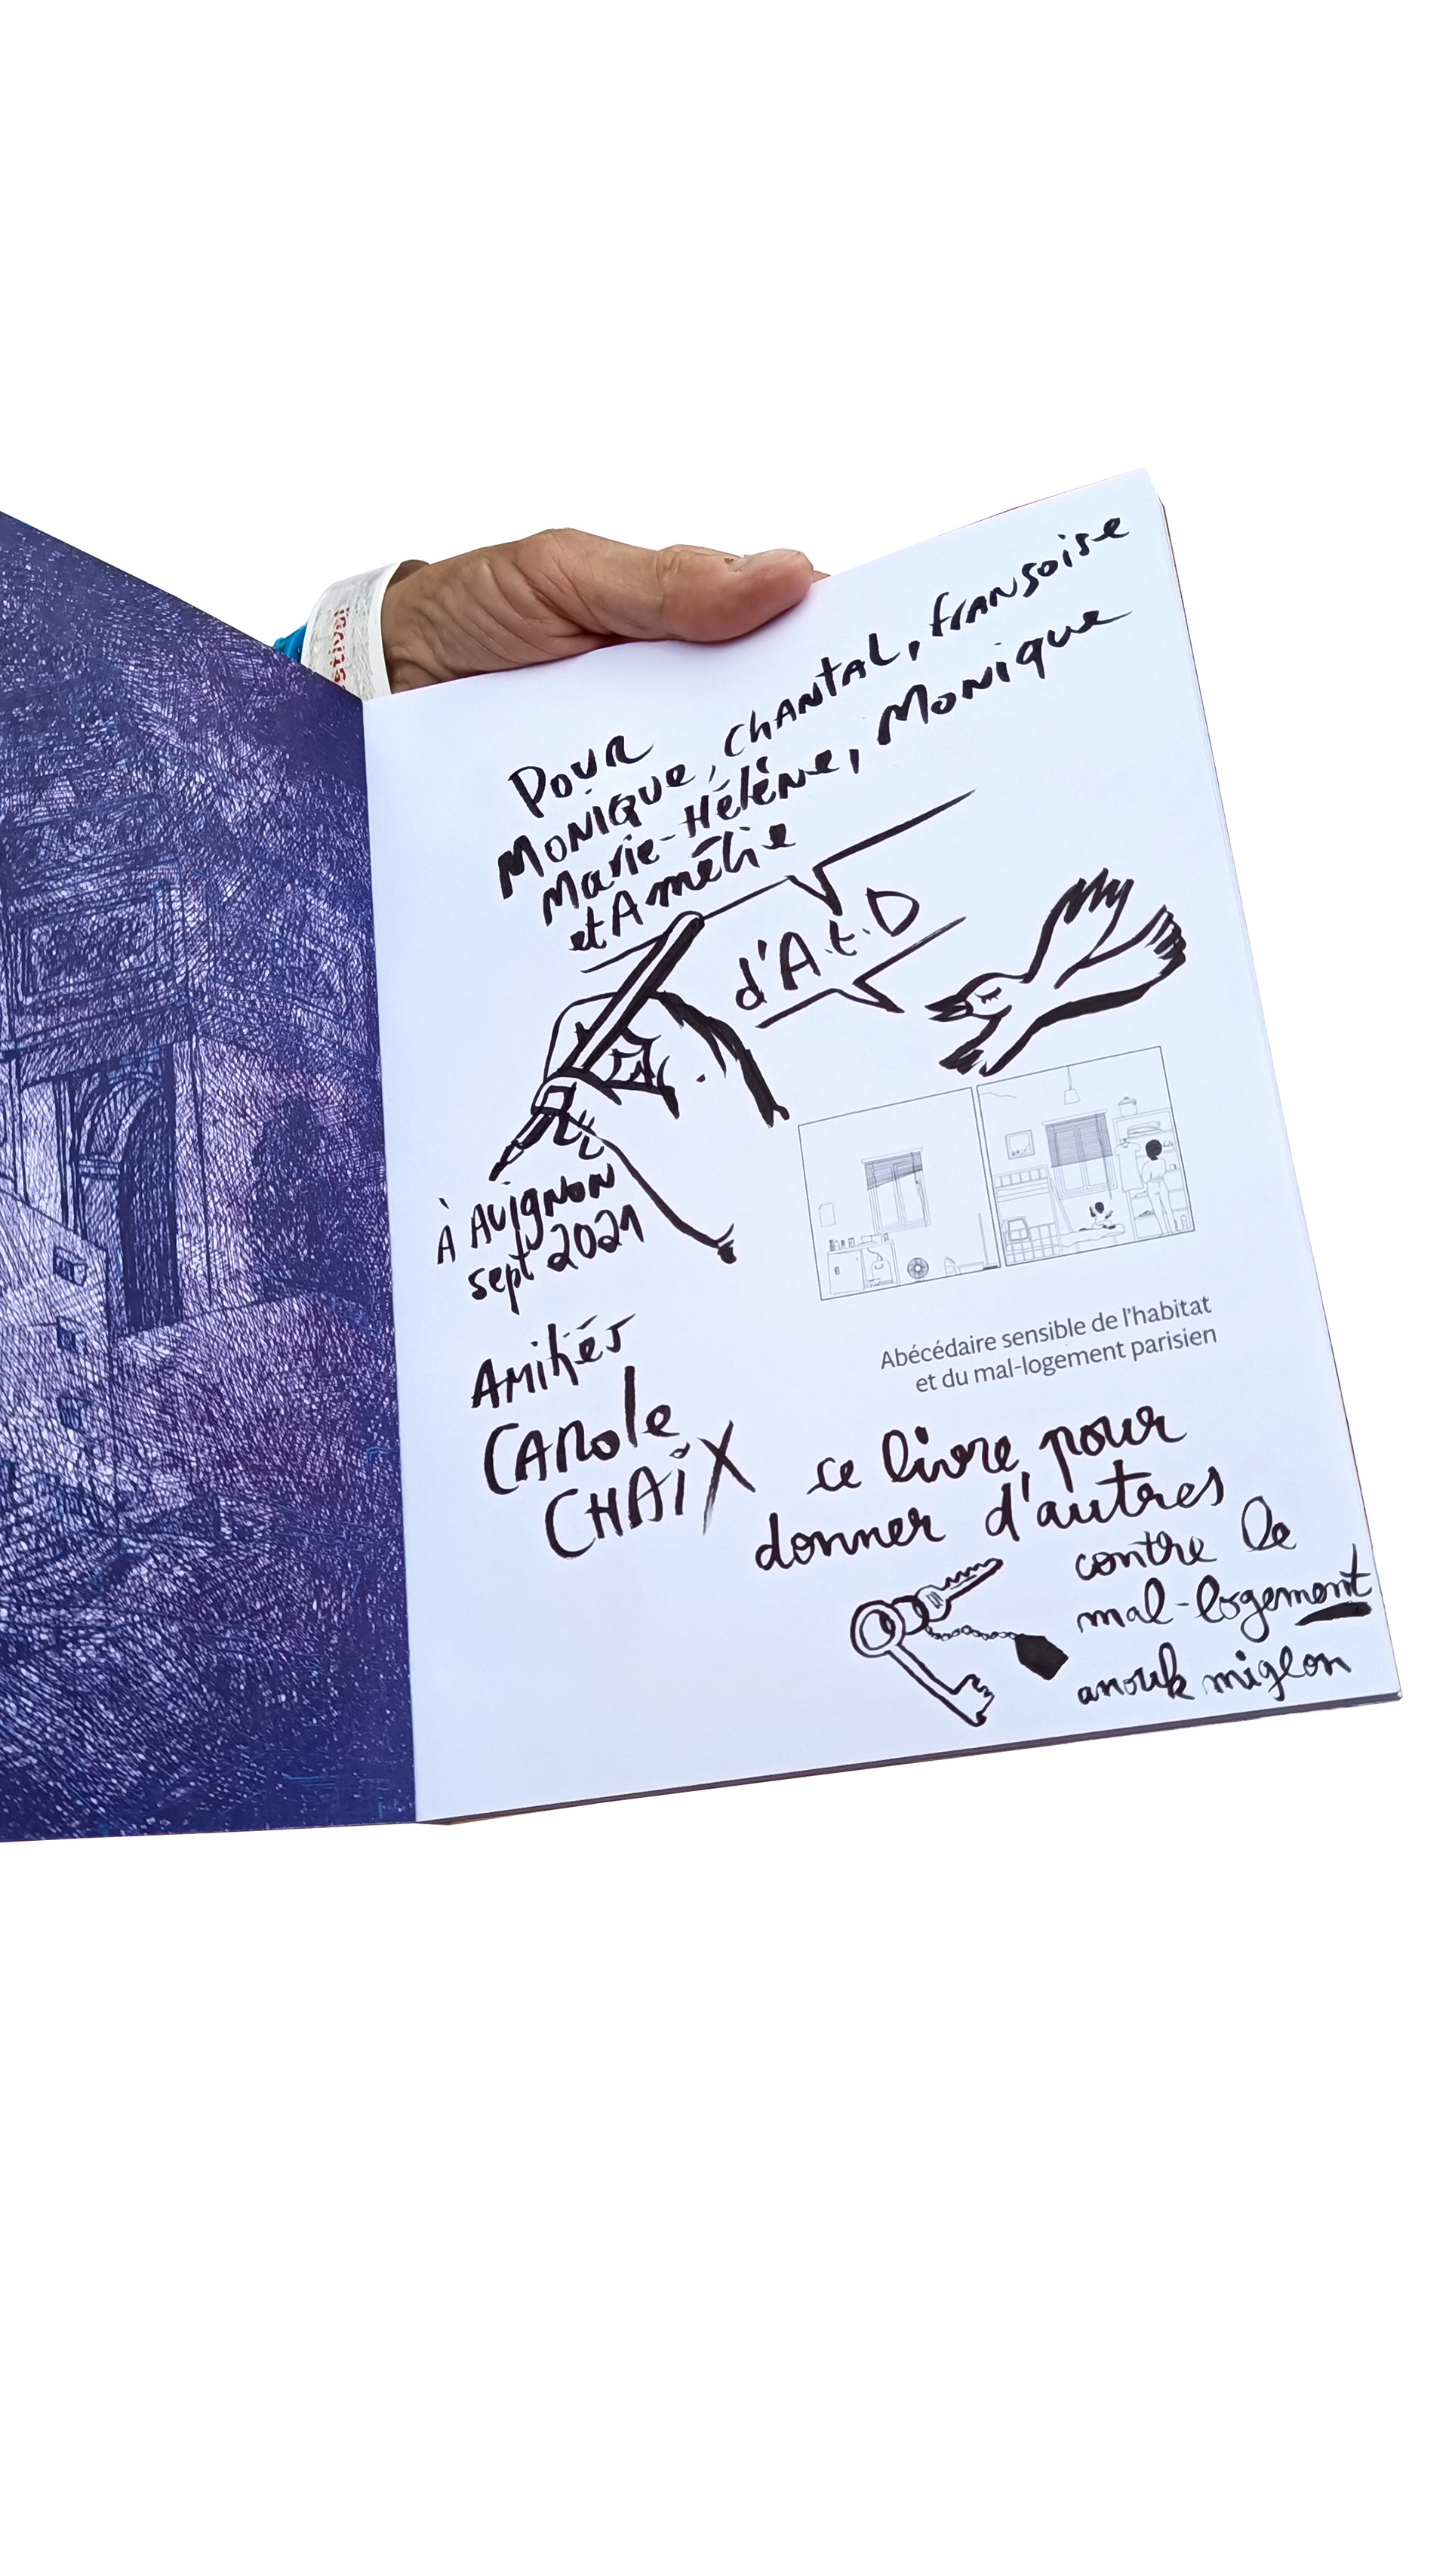 Pour
Monique, Chantal, fransoise
Marie-Hélène, Monique
et Amélie
d'A.t.D
À Avignon
sept 2021
Amitiés
Carole
CHAiX
Abécédaire sensible de l'habitat
et du mal-logement parisien
ce livre, pour
donner d'autres
contre le
mal-logement
anouk migeon